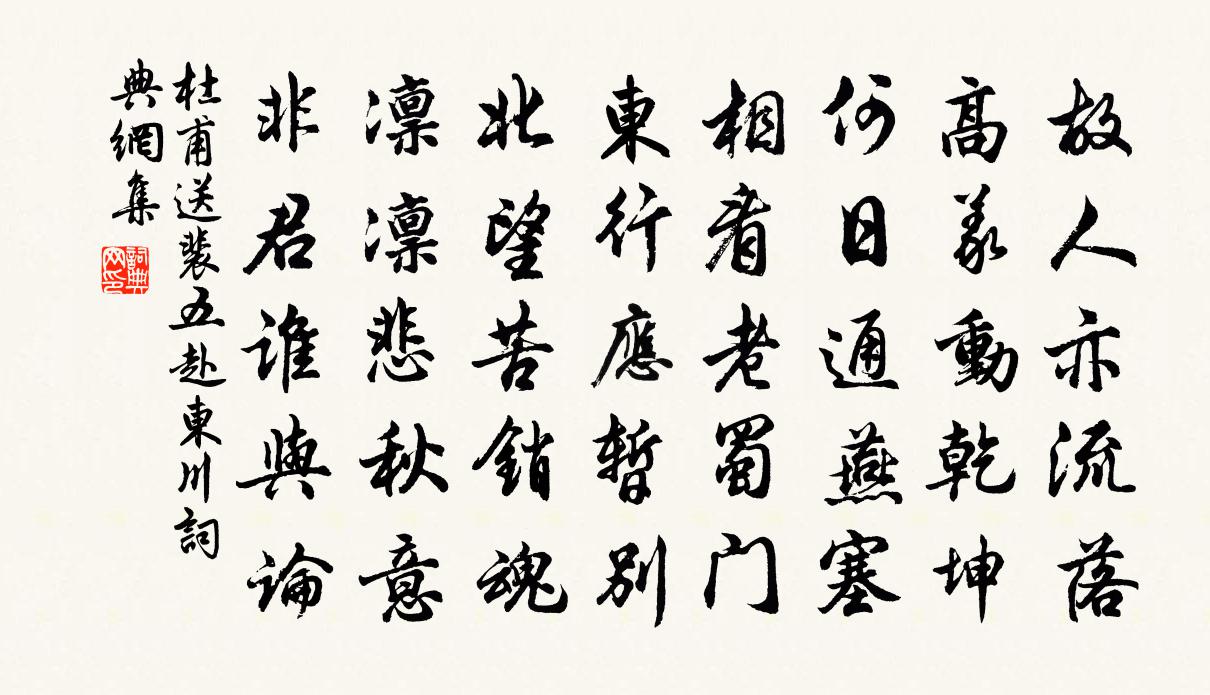 故人亦流落
高義動乾坤
何日通燕塞
相看老蜀門
東行應暫別
北望苦銷魂
凜凜悲秋意
非君誰與論
杜甫送裴五赴東川詞
典網集
詞典
网印